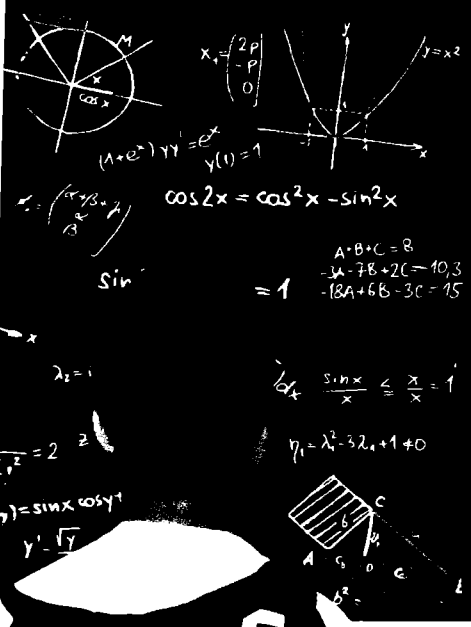 M
x
cos x
x₁ = (2p
-p
0)
y
y = x²
1
-1
1
x
(1+e^x) yy' = e^x
y(1) = 1
(α+β+γ
α
β)
cos2x = cos²x - sin²x
sin
= 1
A+B+C = 8
-3A-7B+2C = -10,3
-18A+6B-3C = 15
x
λ₂ = i
z
sinx/x ≤ x/x = 1
² = 2
η₁ = λ₁² - 3λ₁ + 1 ≠ 0
) = sinx cosy
y' = √y
C
b
A
D
b² =